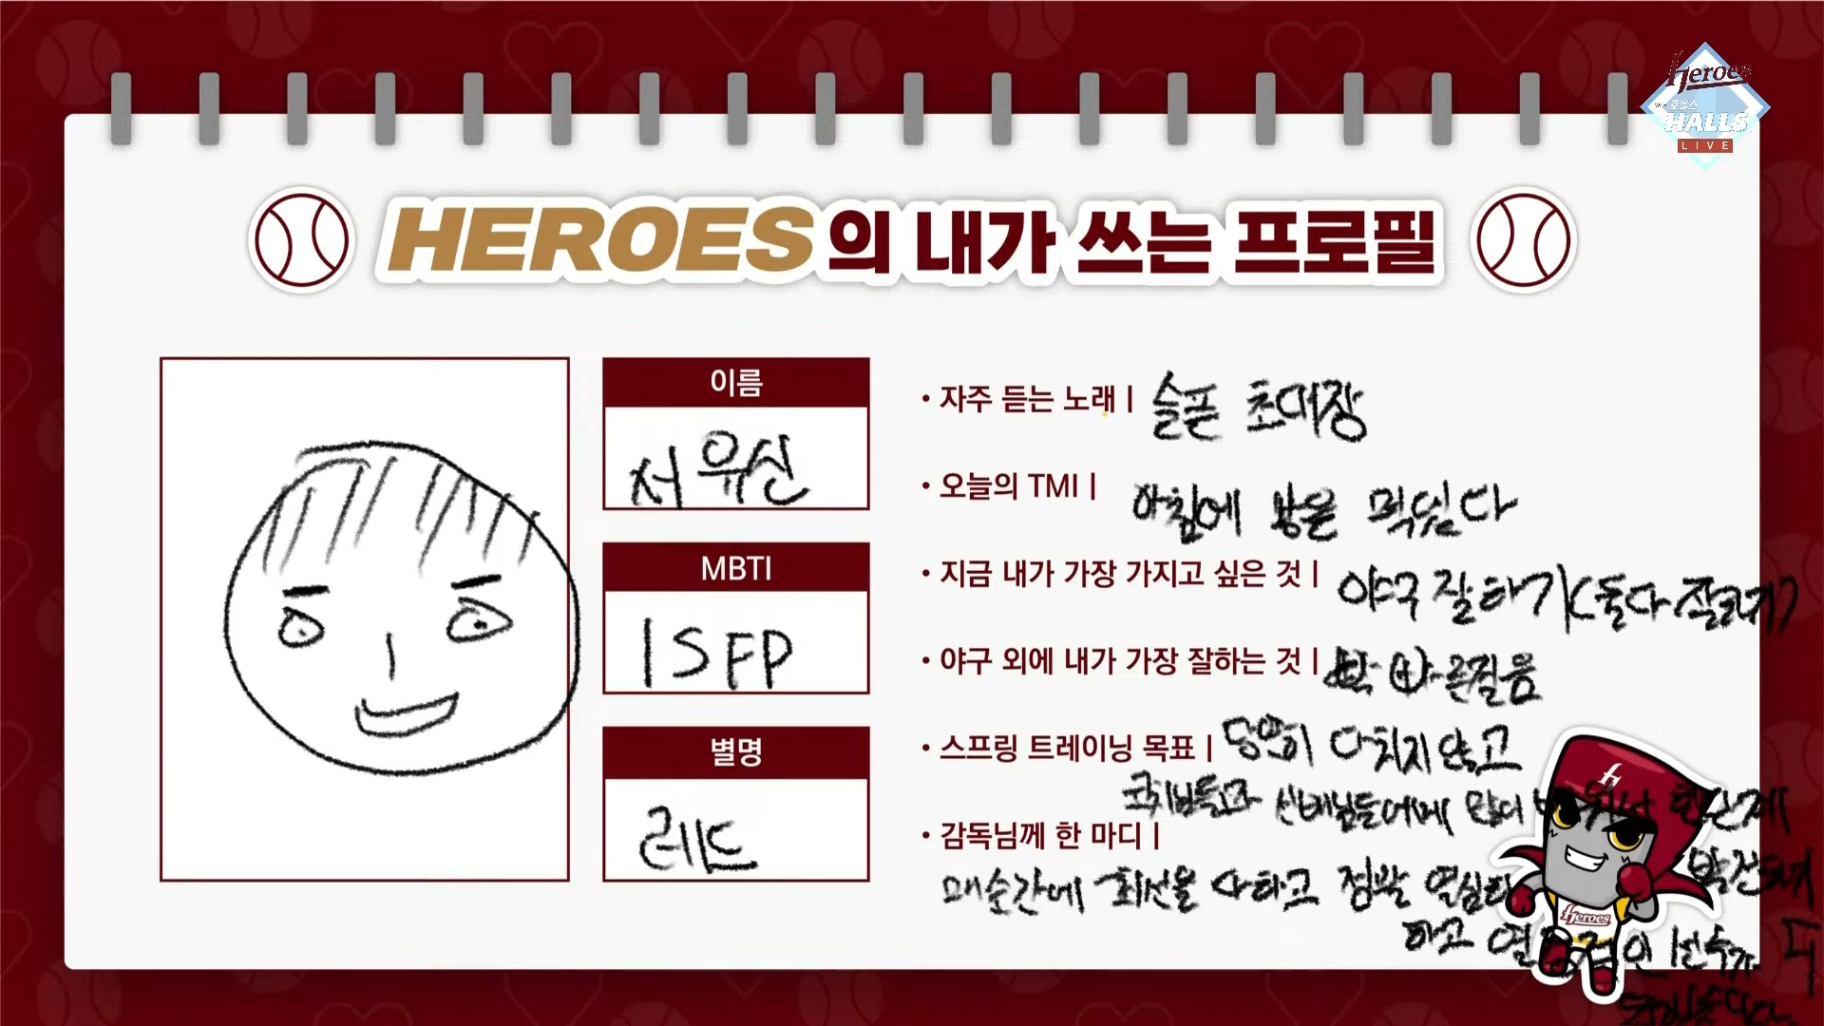 Heroes
호올스
HALLS
LIVE
HEROES의 내가 쓰는 프로필
이름
서유신
MBTI
ISFP
별명
레드
• 자주 듣는 노래 | 슬픈 초대장
• 오늘의 TMI | 아침에 빵을 먹었다
• 지금 내가 가장 가지고 싶은 것 | 야구 잘하기(둘다 잘하기)
• 야구 외에 내가 가장 잘하는 것 | 빠른걸음
• 스프링 트레이닝 목표 | 당연히 다치지 않고
코치님들과 선배님들에게 많이 배워서 한단계
발전하기
• 감독님께 한 마디 |
매순간에 최선을 다하고 정말 열심히
하고 열정적인 선수가
Heroes